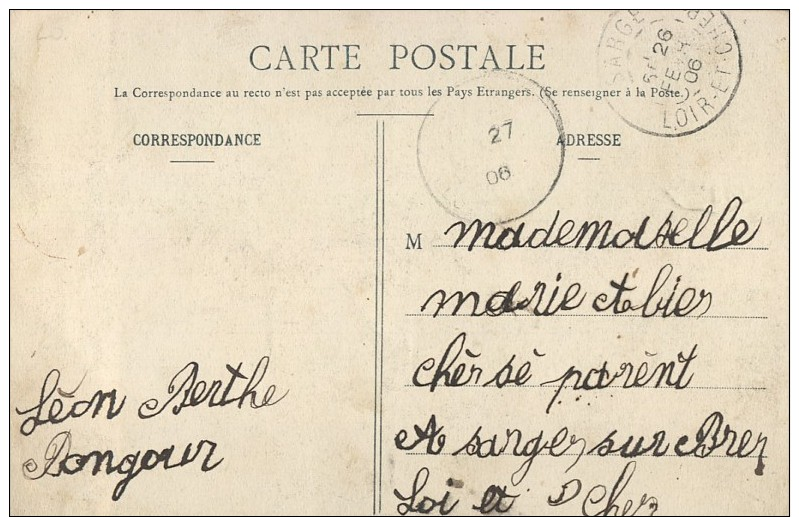 CARTE POSTALE
La Correspondance au recto n'est pas acceptée par tous les Pays Etrangers. (Se renseigner à la Poste.)
CORRESPONDANCE
ADRESSE
26
06
LOIR-ET-CHER
27
06
M mademaselle
marie
chèr sé parènt
A sarges sur Brer
Loi et D Cher
Léon Berthe
Bongour